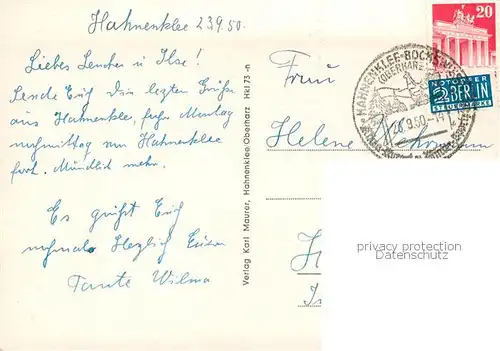 Hahnenklee 23.9.50.
Liebes Lenchen u Ilse!
Sende Euch die letzten Grüße
aus Hahnenklee, fahre Montag
nachmittag von Hahnenklee
fort. Mündlich mehr.
Es grüßt Euch
nochmals Herzlich Eure
Tante Wilma
Verlag Karl Maurer, Hahnenklee/Oberharz Hkl 73 -n
Frau
Helene
20
NOTOPFER
2 BERLIN
STEUERMARKE
HAHNENKLEE-BOCKSWIESE
OBERHARZ
privacy protection
Datenschutz